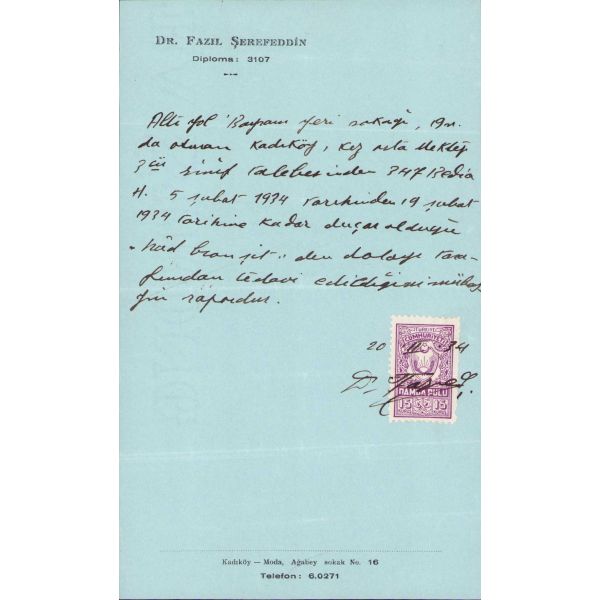 DR. FAZIL ŞEREFEDDİN
Diploma: 3107
Altı yol Bayram yeri sokağı, 19 n.
da oturan Kadıköy, Kız orta Mektep
3 üü sınıf talebesinden 347 Bedia
H. 5 şubat 1934 tarihinden 19 şubat
1934 tarihine kadar duçar olduğu
„ hâd bronşit „ den dolayı tara-
fımdan tedavi edildiğini mübey-
yin rapordur.
20 II 934
TÜRKİYE
CUMHURİYETİ
Dr.
DAMGA PULU
15 15
Kadıköy — Moda, Ağabey sokak No. 16
Telefon: 6.0271